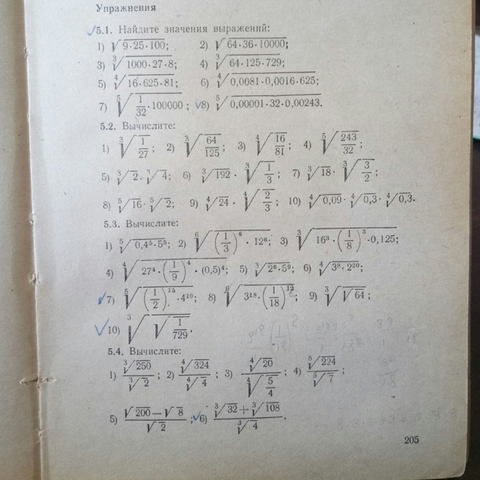 Упражнения
5.1. Найдите значения выражений:
1) √(9·25·100); 2) √(64·36·10000);
3) ∛(1000·27·8); 4) ∛(64·125·729);
5) ∜(16·625·81); 6) ∜(0,0081·0,0016·625);
7) ⁵√(1/32·100000); 8) ⁵√(0,00001·32·0,00243).
5.2. Вычислите:
1) ∛(1/27); 2) ∛(64/125); 3) ∜(16/81); 4) ⁵√(243/32);
5) ∛2·∛4; 6) ∛192·∛(1/3); 7) ∛18·∛(3/2);
8) ⁵√16·⁵√2; 9) ∜24·∜(2/3); 10) ∜0,09·∜0,3·∜0,3.
5.3. Вычислите:
1) ⁵√(0,4⁵·5⁵); 2) ⁶√((1/3)⁶·12⁶); 3) ∛(16³·(1/8)³·0,125);
4) ∜(27⁴·(1/9)⁴·(0,5)⁴); 5) ∛(2⁶·5⁹); 6) ∜(3⁸·2²⁰);
7) ⁵√((1/2)¹⁵·4¹⁰); 8) ⁶√(3¹⁸·(1/18)¹²); 9) ∛√64;
10) ∛√(1/729).
5.4. Вычислите:
1) ∛250/∛2; 2) ∜324/∜4; 3) ∜20/∜(5/4); 4) ⁵√224/∛7;
5) (√200−√8)/√2; 6) (∛32+∛108)/∛4.
205